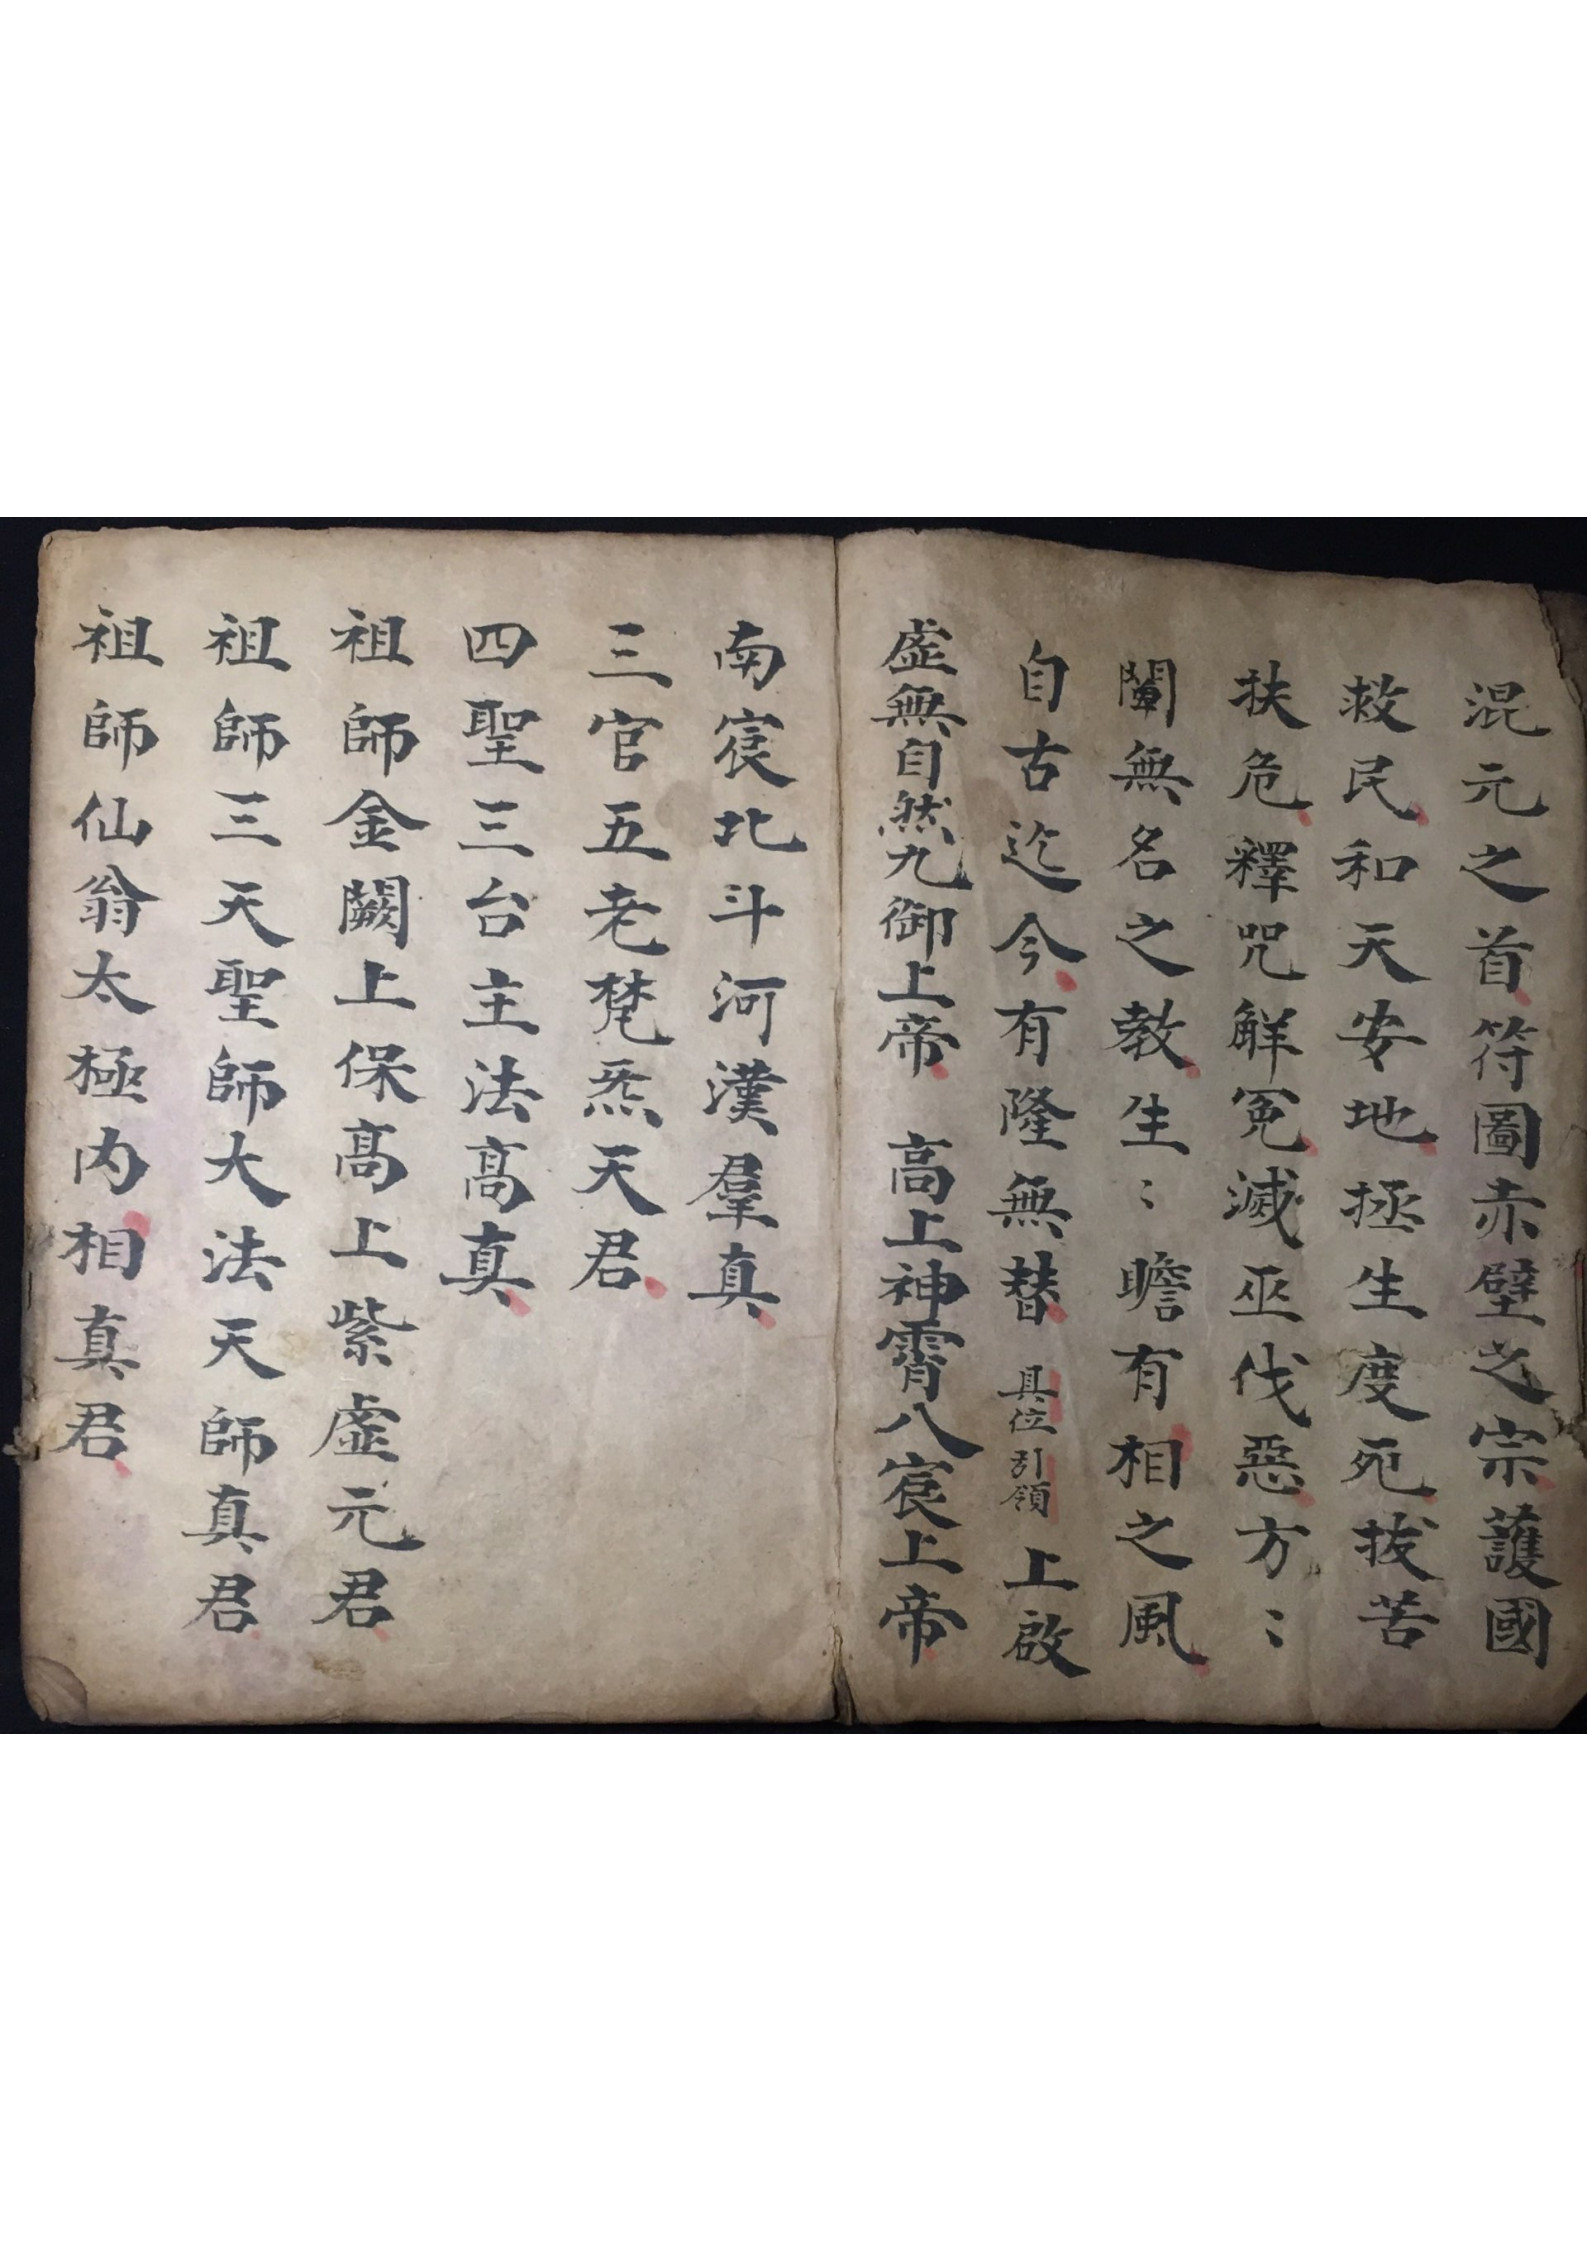 混元之首符圖赤壁之宗護國
救民和天安地拯生度死拔苦
扶危釋咒解冤滅巫伐惡方〻
闡無名之教生〻瞻有相之風
自古迄今有隆無替 具位 引領 上啟
虛無自然九御上帝 高上神霄八宸上帝
南宸北斗河漢羣真
三官五老梵炁天君
四聖三台主法高真
祖師金闕上保高上紫虛元君
祖師三天聖師大法天師真君
祖師仙翁太極內相真君